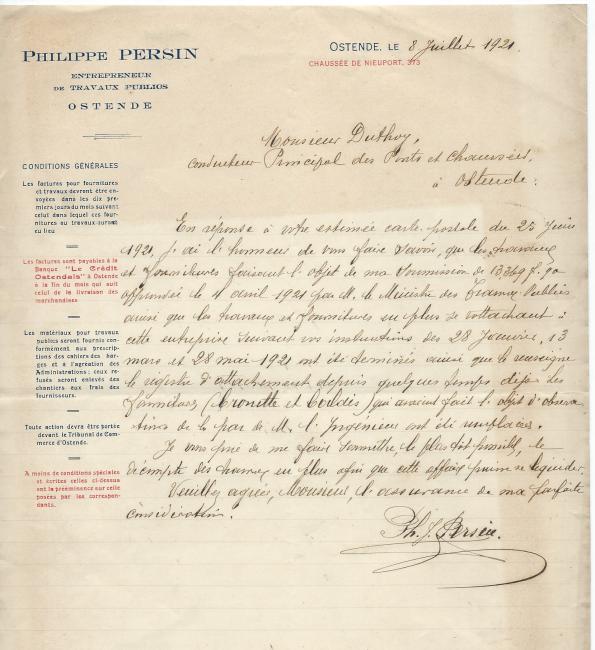 PHILIPPE PERSIN
ENTREPRENEUR
DE TRAVAUX PUBLICS
OSTENDE
OSTENDE, LE 8 Juillet 1921.
CHAUSSÉE DE NIEUPORT, 373
Monsieur Duthoy,
conducteur Principal des Ponts et Chaussées,
à Ostende.
CONDITIONS GÉNÉRALES
Les factures pour fournitures
et travaux devront être en-
voyées dans les dix pre-
miers jours du mois suivant
celui dans lequel ces four-
nitures ou travaux auront
eu lieu
Les factures sont payables à la
Banque "Le Crédit
Ostendais" à Ostende
à la fin du mois qui suit
celui de la livraison des
marchandises
Les matériaux pour travaux
publics seront fournis con-
formément aux prescrip-
tions des cahiers des har-
ges et à l'agréation des
Administrations; ceux re-
fusés seront enlevés des
chantiers aux frais des
fournisseurs.
Toute action devra être portée
devant le Tribunal de Com-
merce d'Ostende.
A moins de conditions spéciales
et écrites celles ci-dessus
ont la prééminence sur celle
posées par les correspon-
dants.
En réponse à votre estimée carte postale du 25 Juin
1921, j'ai l'honneur de vous faire savoir, que les travaux
et fournitures faisant l'objet de ma soumission de 13,369 f.
approuvée le 4 avril 1921 par M. le Ministre des Travaux Publics
ainsi que les travaux et fournitures en plus se rattachant à
cette entreprise suivant vos instructions des 28 Janvier, 13
mars et 28 mai 1921 ont été terminés ainsi que le renseigne
le registre d'attachement depuis quelques temps déjà. Les
fournitures qui avaient fait l'objet d'observa
tions de la part de M. l'Ingénieur ont été remplacées.
Je vous prie de me faire remettre, le plus tôt possible, le
décompte des travaux en plus afin que cette affaire puisse se liquider.
Veuillez agréer, Monsieur, l'assurance de ma parfaite
considération.
Ph. J. Persin.